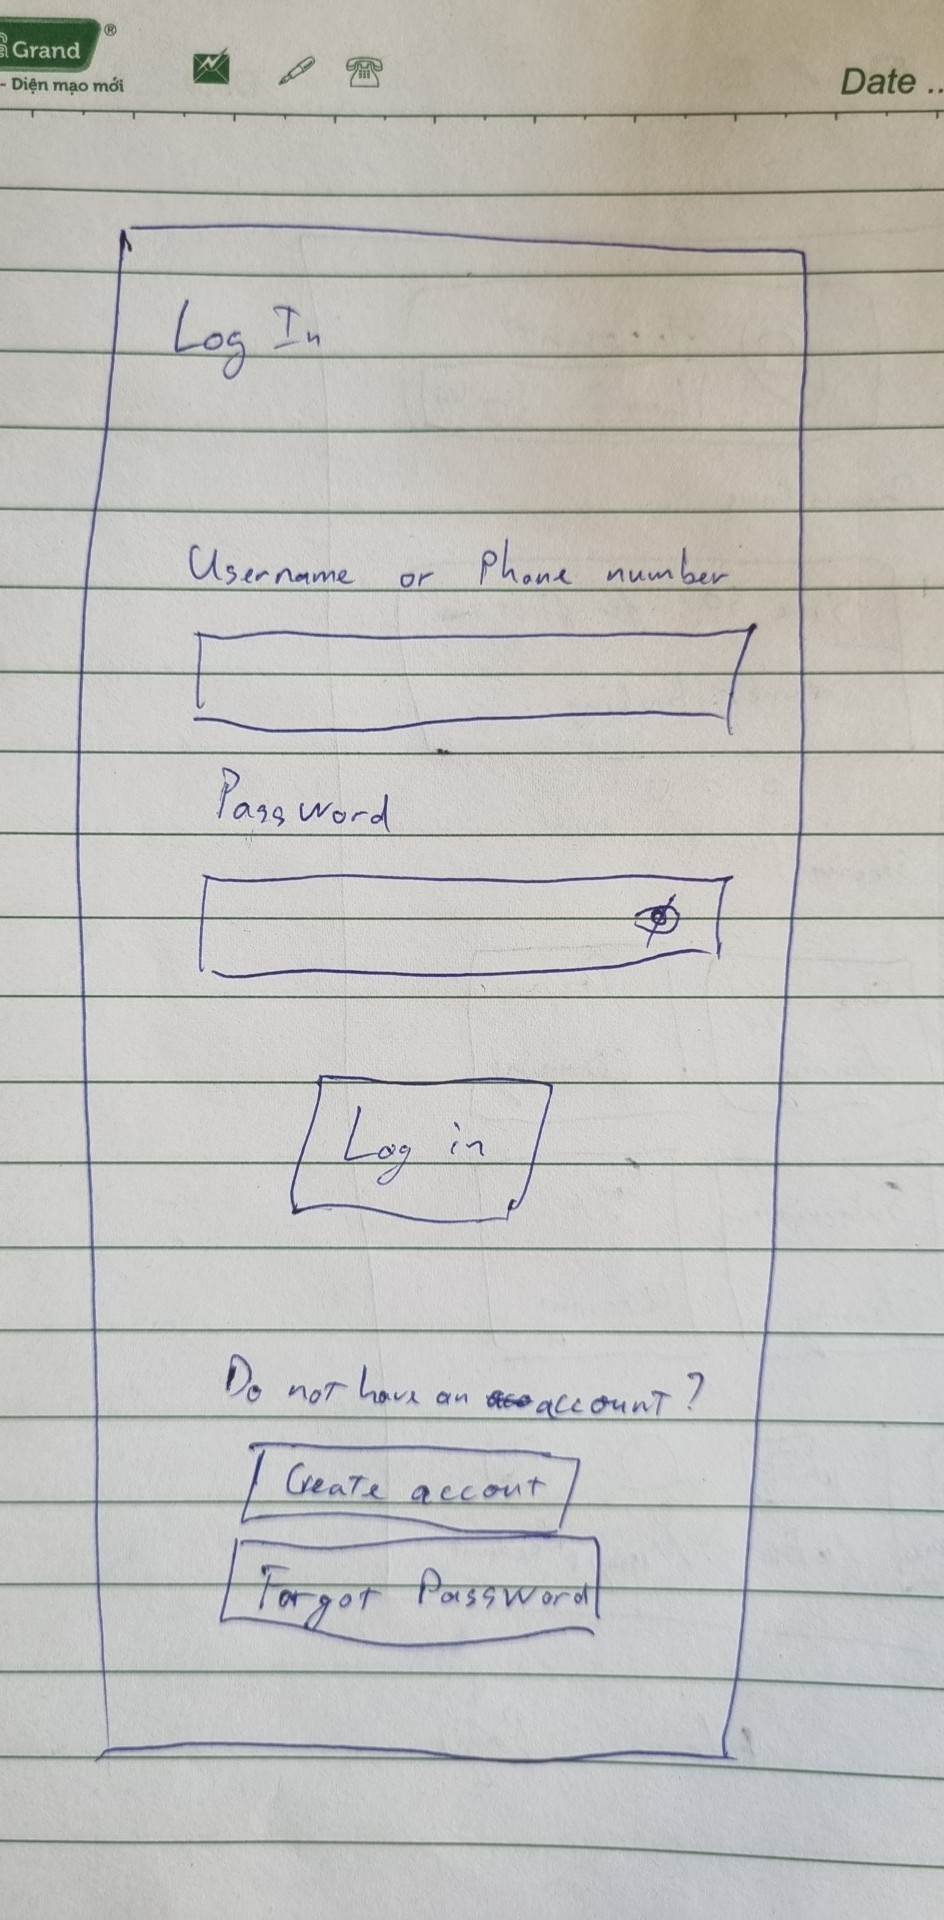 Grand ®
- Diện mạo mới
Date ..
Log In
Username or Phone number
Password
Log in
Do not have an account?
Create accout
Forgot Password